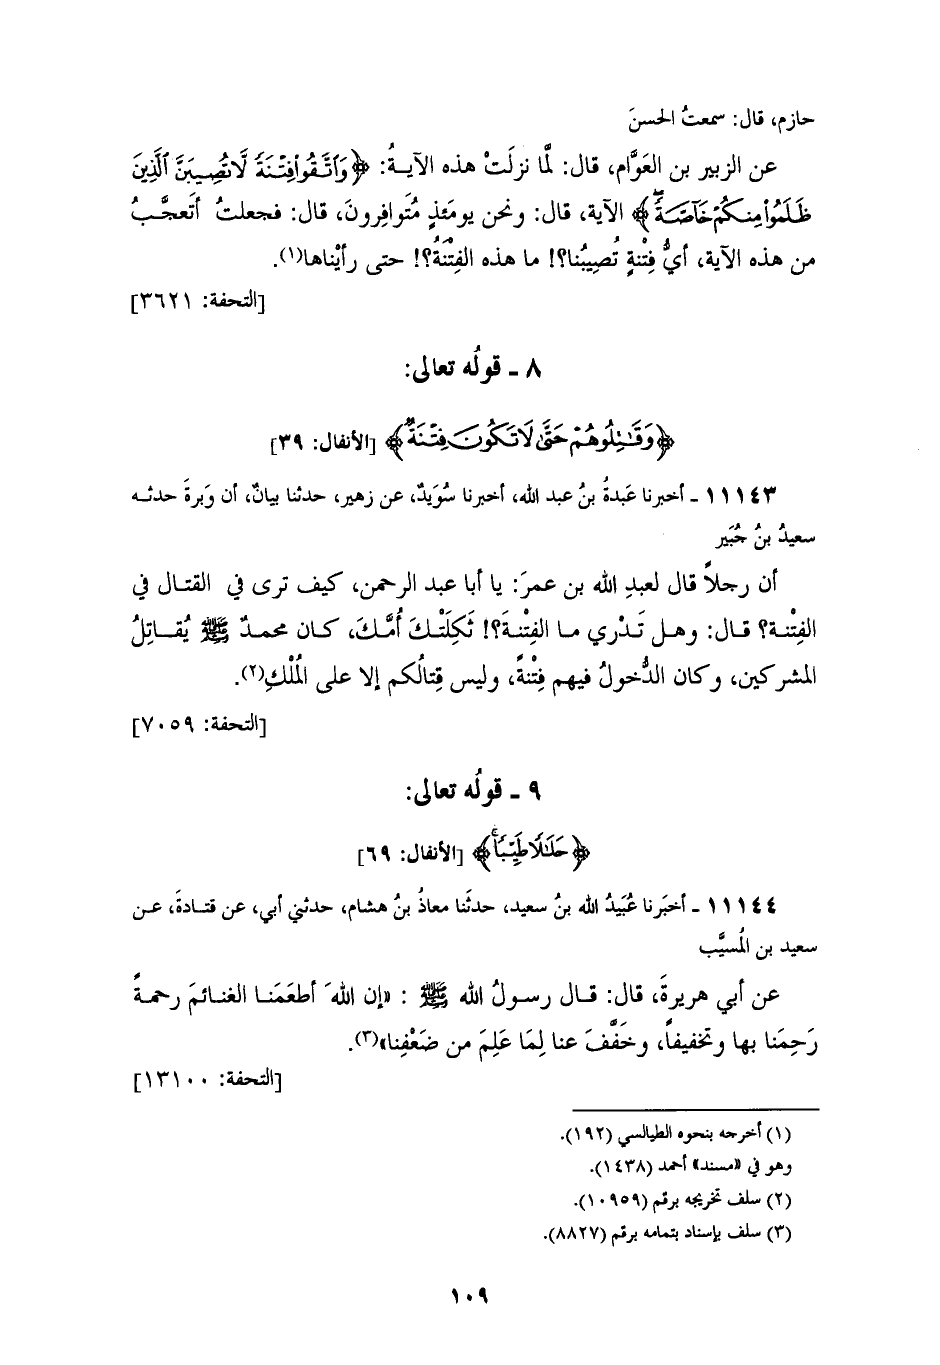 حازم، قال: سمعتُ الحسنَ
عن الزبير بن العَوَّام، قال: لَّما نزلَتْ هذه الآيـةُ: ﴿وَٱتَّقُوا۟ فِتْنَةً لَّا تُصِيبَنَّ ٱلَّذِينَ
ظَلَمُوا۟ مِنكُمْ خَآصَّةً ۖ﴾ الآية، قال: ونحن يومَئذٍ مُتَوافِرونَ، قال: فجعلتُ أتَعجَّبُ
من هذه الآية، أيُّ فِتْنةٍ تُصِيبُنا؟! ما هذه الفِتْنَةُ؟! حتى رأيْناها(١).
[التحفة: ٣٦٢١]
٨ ـ قولُه تعالى:
﴿وَقَٰتِلُوهُمْ حَتَّىٰ لَا تَكُونَ فِتْنَةٌ ۖ﴾ [الأنفال: ٣٩]
١١١٤٣ ـ أخبرنا عَبدةُ بنُ عبد الله، أخبرنا سُوَيدٌ، عن زهير، حدثنا بيانٌ، أن وَبرةَ حدثـه
سعيدُ بنُ جُبَير
أن رجلاً قال لعبدِ الله بن عمرَ: يا أبا عبد الرحمن، كيف ترى في القتال في
الفِتْنـة؟ قـال: وهـل تَـدْري مـا الفِتْنـةَ؟! ثَكِلَتْـكَ أُمُّـكَ، كـان محمـدٌ ﷺ يُقـاتِلُ
المشركين، وكان الدُّخولُ فيهم فِتْنةً، وليس قِتالُكم إلا على الُملْكِ(٢).
[التحفة: ٧٠٥٩]
٩ ـ قولُه تعالى:
﴿حَلَٰلًا طَيِّبًا ۚ﴾ [الأنفال: ٦٩]
١١١٤٤ ـ أخبَرنا عُبَيدُ الله بنُ سعيد، حدثَنا معاذُ بنُ هشام، حدثني أبي، عن قتـادةَ، عـن
سعيد بن الُمسيَّب
عن أبي هريرةَ، قال: قـال رسـولُ الله ﷺ : «إن اللهَ أطعَمَنـا الغنـائمَ رحمـةً
رَحِمَنا بها وتخفيفاً، وخَفَّفَ عنا لِمَا عَلِمَ من ضَعْفِنا»(٣).
[التحفة: ١٣١٠٠]
(١) أخرجه بنحوه الطيالسي (١٩٢).
وهو في «مسند» أحمد (١٤٣٨).
(٢) سلف تخريجه برقم (١٠٩٥٩).
(٣) سلف بإسناد بتمامه برقم (٨٨٢٧).
١٠٩